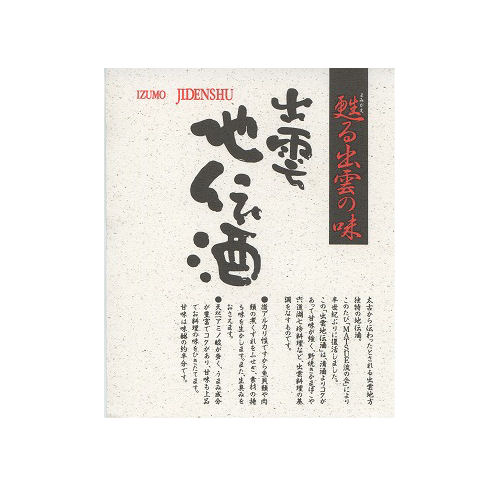 IZUMO JIDENSHU
出雲
地伝酒
よみがえ
甦る出雲の味
太古から伝わったとされる出雲地方
独特の地伝酒。
このたび、「MATSUE流の会」により
半世紀ぶりに復活しました。
この「出雲地伝酒」は、清酒よりコクが
あって甘味が強く、野焼きかまぼこや
宍道湖七珍料理など、出雲料理の基
調をなすものです。
●微アルカリ性ですから魚貝類や肉
類の煮くずれをふせぎ、素材の持
ち味を生かします。また、生臭みを
おさえます。
●天然アミノ酸が多く、うまみ成分
が豊富でコクがあり、甘味も上品
でお料理の味をひきたてます。
甘味は味醂の約半分です。